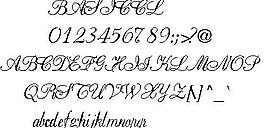 BASICCL
0123456789:;>?@
ABCDEFGHIJKLMNOP
QRSTUVWXYZ[\]^_`
abcdefghijklmnopqr